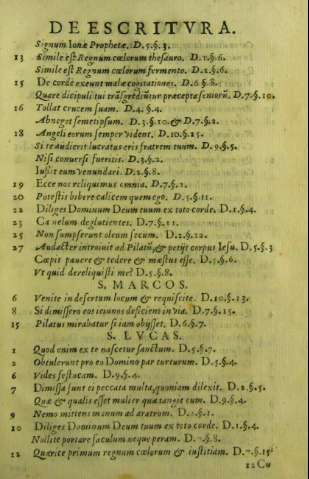 DE ESCRITVRA.
Signum Ionæ Prophetæ. D.5.§.3.
13 Simile est Regnum cœlorum thesauro. D.1.§.6.
Simile est Regnum cœlorum fermento. D.2.§.6.
15 De corde exeunt malæ cogitationes. D.6.§.8.
Quare discipuli tui præcepta seniorũ. D.7.§.10.
16 Tollat crucem suam. D.4.§.4.
Abneget semetipsum. D.3.§.10.& D.7.§.2.
18 Angeli eorum semper vident. D.10.§.15.
Si te audierit lucratus eris fratrem tuum. D.9.§.5.
Nisi conuersi fueritis. D.3.§.2.
Iussit eum venundari. D.2.§.8.
19 Ecce nos reliquimus omnia. D.7.§.2.
20 Potestis bibere calicem quem ego. D.5.§.11.
22 Diliges Dominum Deum tuum ex toto corde. D.1.§.4.
23 Camelum deglutientes. D.7.§.11.
25 Non sumpserunt oleum secum. D.2.§.12.
27 Audacter introiuit ad Pilatũ, & petijt corpus Iesu. D.5.§.3
Cœpit pauere & tedere & mæstus esse. D.5.§.6.
Vt quid dereliquisti me? D.5.§.8.
S. MARCOS.
6 Venite in desertum locum & requiescite. D.10.§.13.
8 Si dimissero eos ieiunos deficient in via. D.7.§.15.
15 Pilatus mirabatur si iam obijsset. D.6.§.7.
S. LVCAS.
1 Quod enim ex te nascetur sanctum. D.5.§.7.
2 Obtulerunt pro eo Domino par turturum. D.5.§.4.
6 Vides festucam. D.9.§.4.
7 Dimissa sunt ei peccata multa, quoniam dilexit. D.2.§.5.
Quæ & qualis esset mulier quæ tangit eum. D.9.§.4.
9 Nemo mittens manum ad aratrum.
10 Diliges Dominum Deum tuum ex toto corde. D.1.§.4.
Nolite portare sacculum neque peram. D.7.§.8.
12 Quærite primum regnum cœlorum & iustitiam. D.7.§.15
12 Cu